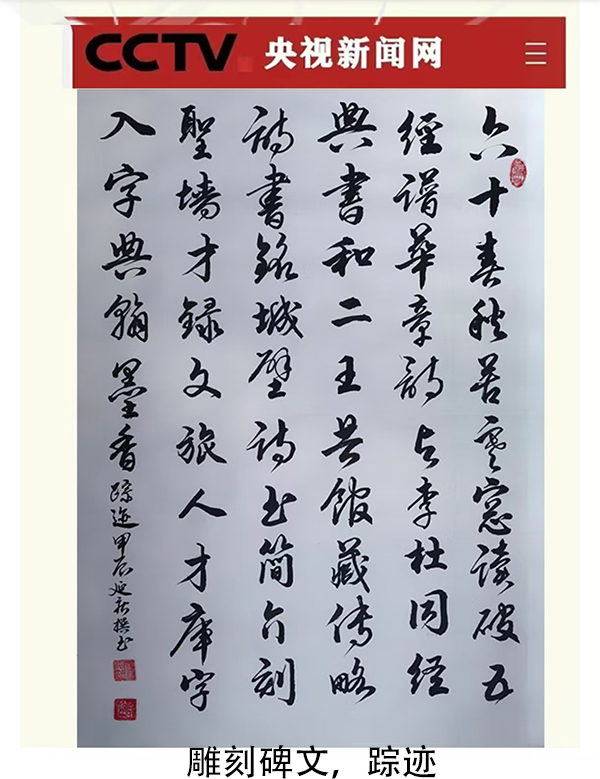 CCTV 央视新闻网
六十春秋苦寒窓读破五
經谱華章韵与李杜同经
典書和二王共館藏传略
詩書銘城壁诗书简介刻
聖墙才録文旅人才库字
入字典翰墨香踪迹甲辰延新撰书
雕刻碑文，踪迹